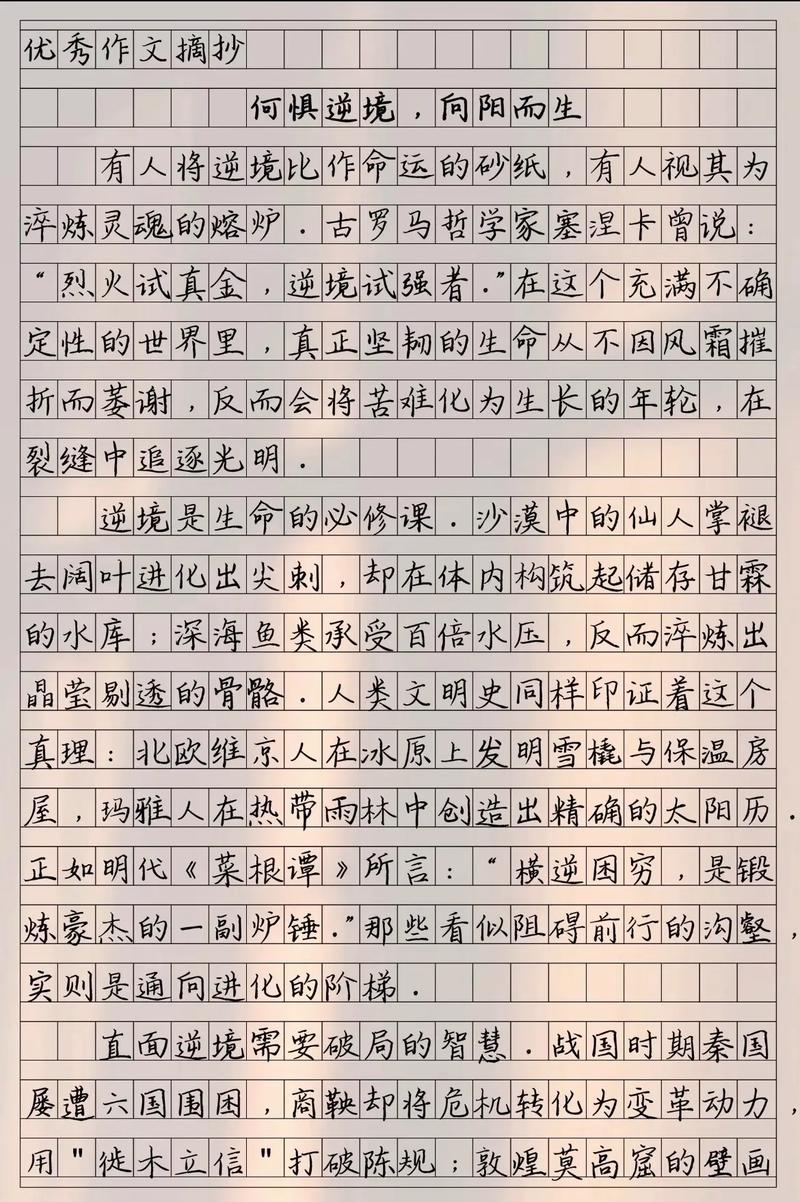 优秀作文摘抄
何惧逆境，向阳而生
有人将逆境比作命运的砂纸，有人视其为
淬炼灵魂的熔炉．古罗马哲学家塞涅卡曾说：
“烈火试真金，逆境试强者．”在这个充满不确
定性的世界里，真正坚韧的生命从不因风霜摧
折而萎谢，反而会将苦难化为生长的年轮，在
裂缝中追逐光明．
逆境是生命的必修课．沙漠中的仙人掌褪
去阔叶进化出尖刺，却在体内构筑起储存甘霖
的水库；深海鱼类承受百倍水压，反而淬炼出
晶莹剔透的骨骼．人类文明史同样印证着这个
真理：北欧维京人在冰原上发明雪橇与保温房
屋，玛雅人在热带雨林中创造出精确的太阳历．
正如明代《菜根谭》所言：“横逆困穷，是锻
炼豪杰的一副炉锤．”那些看似阻碍前行的沟壑，
实则是通向进化的阶梯．
直面逆境需要破局的智慧．战国时期秦国
屡遭六国围困，商鞅却将危机转化为变革动力，
用"徙木立信"打破陈规；敦煌莫高窟的壁画